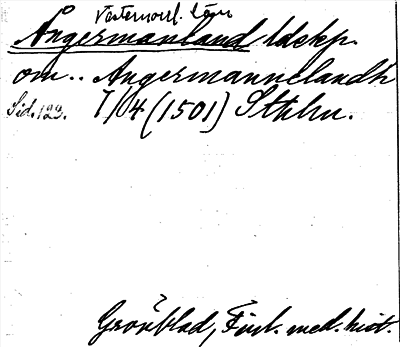 Västernorrl. län
Ångermanland ldskp.
om.. Angermannelandh
Sid. 123. 7/04 (1501) Sthlm.
Grönblad, Finl. med. hist.